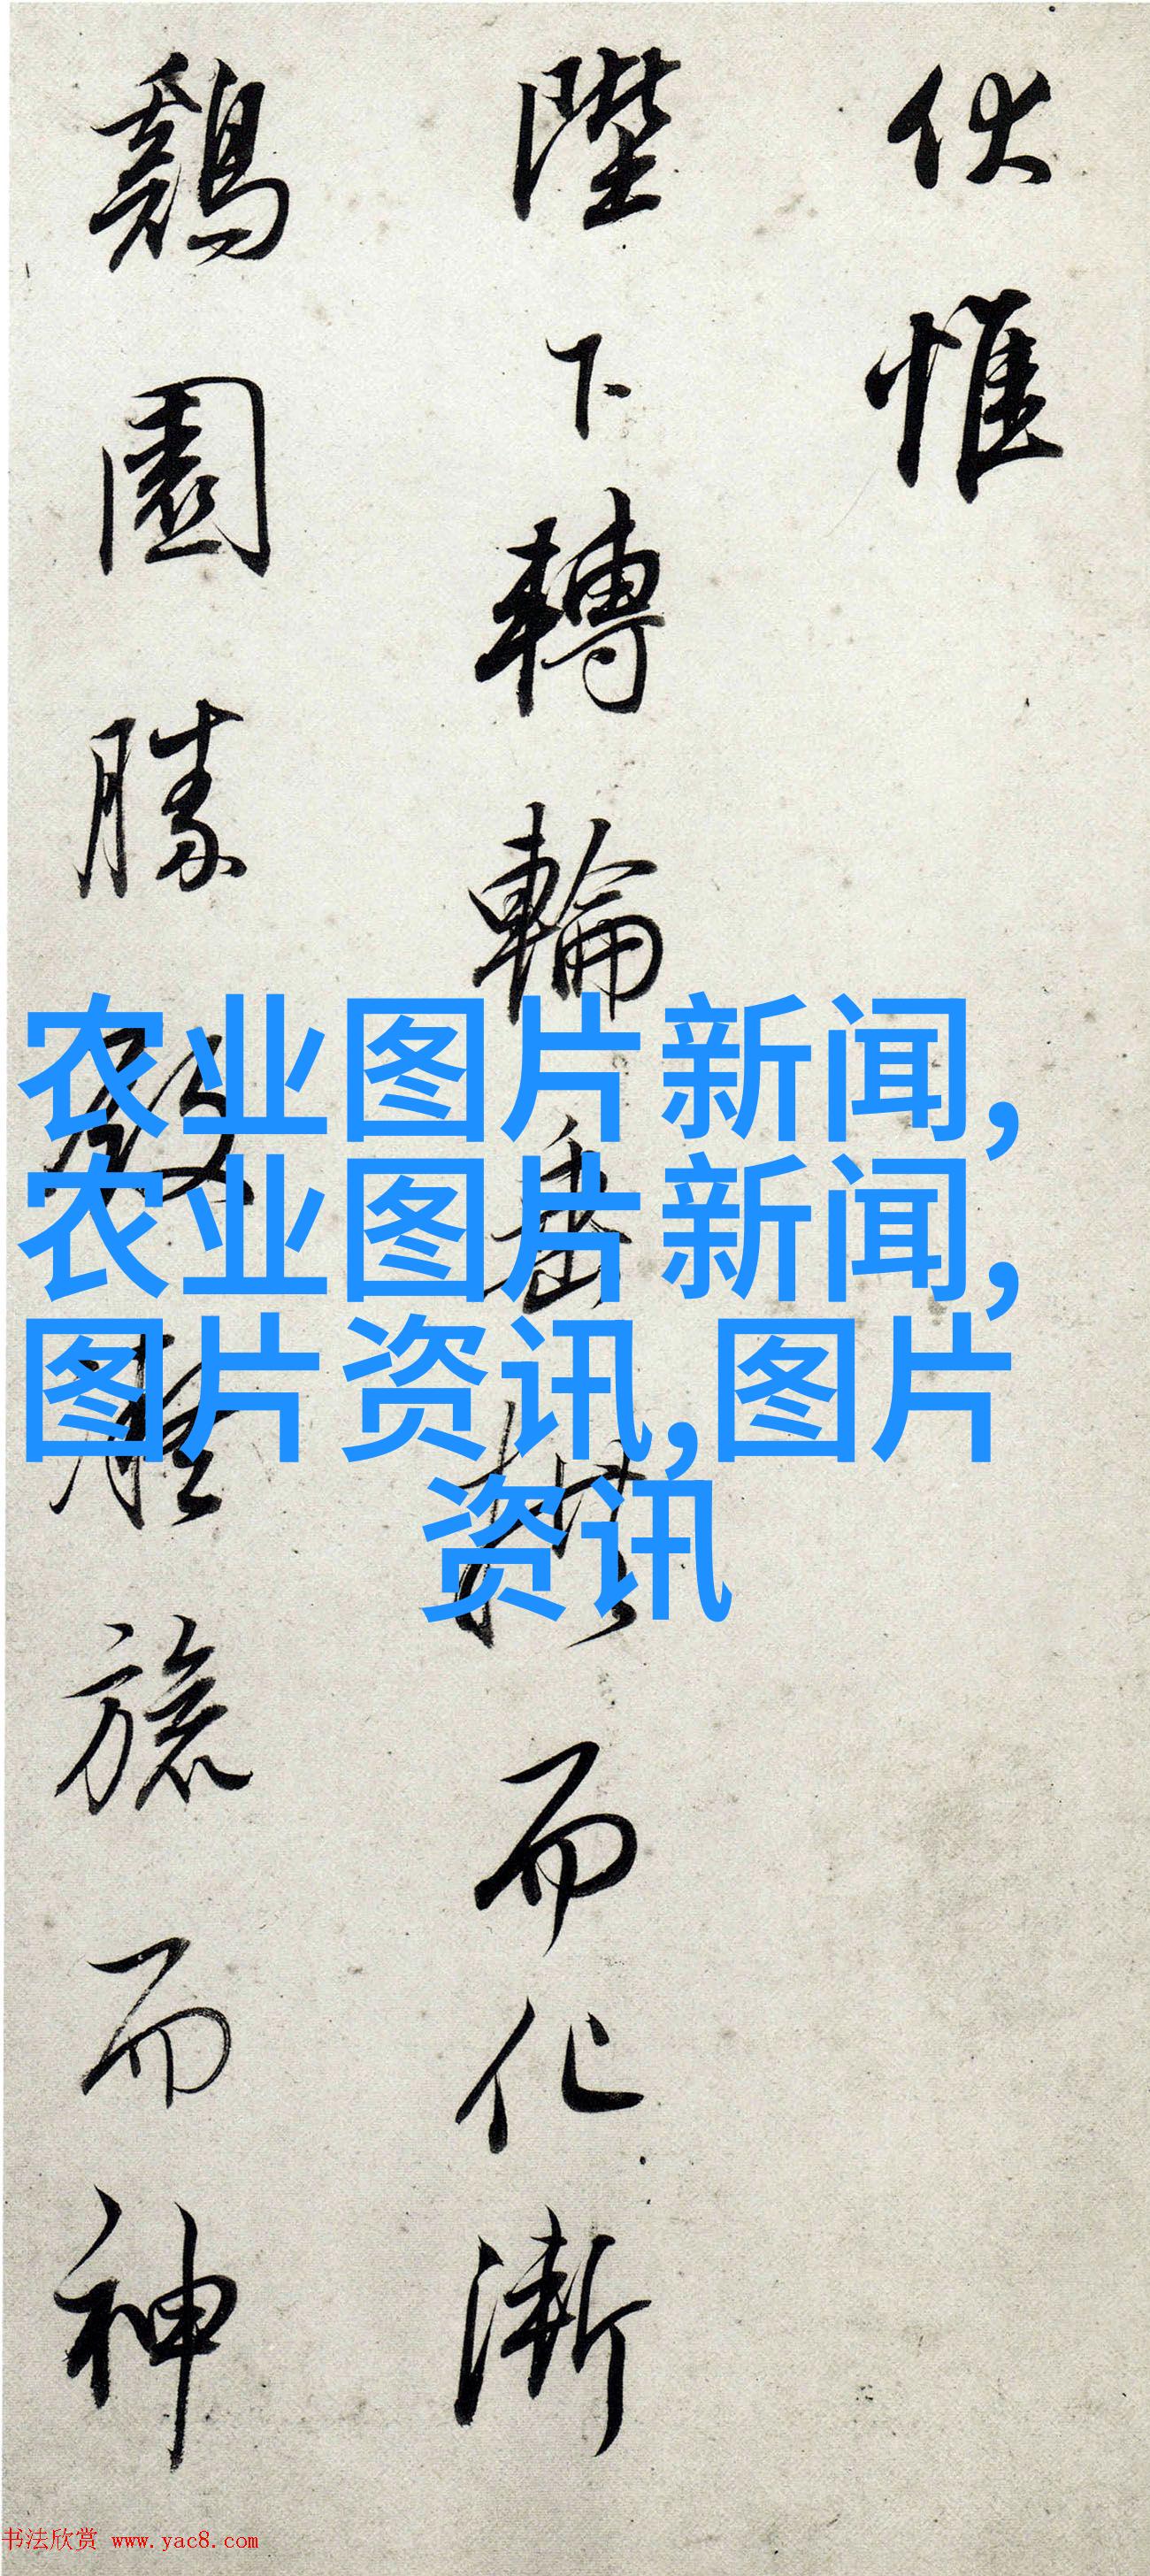 伏惟
陛下轉輪垂拱而化漸
鷄園勝殿凝旒而神
农业图片新闻,
农业图片新闻,
图片资讯,图片
资讯
书法欣赏 www.yac8.com